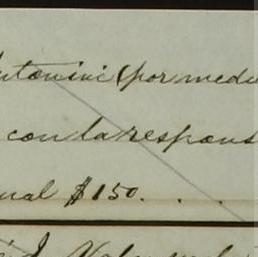 ntonini (por medi
con la respons
ual $150. . .